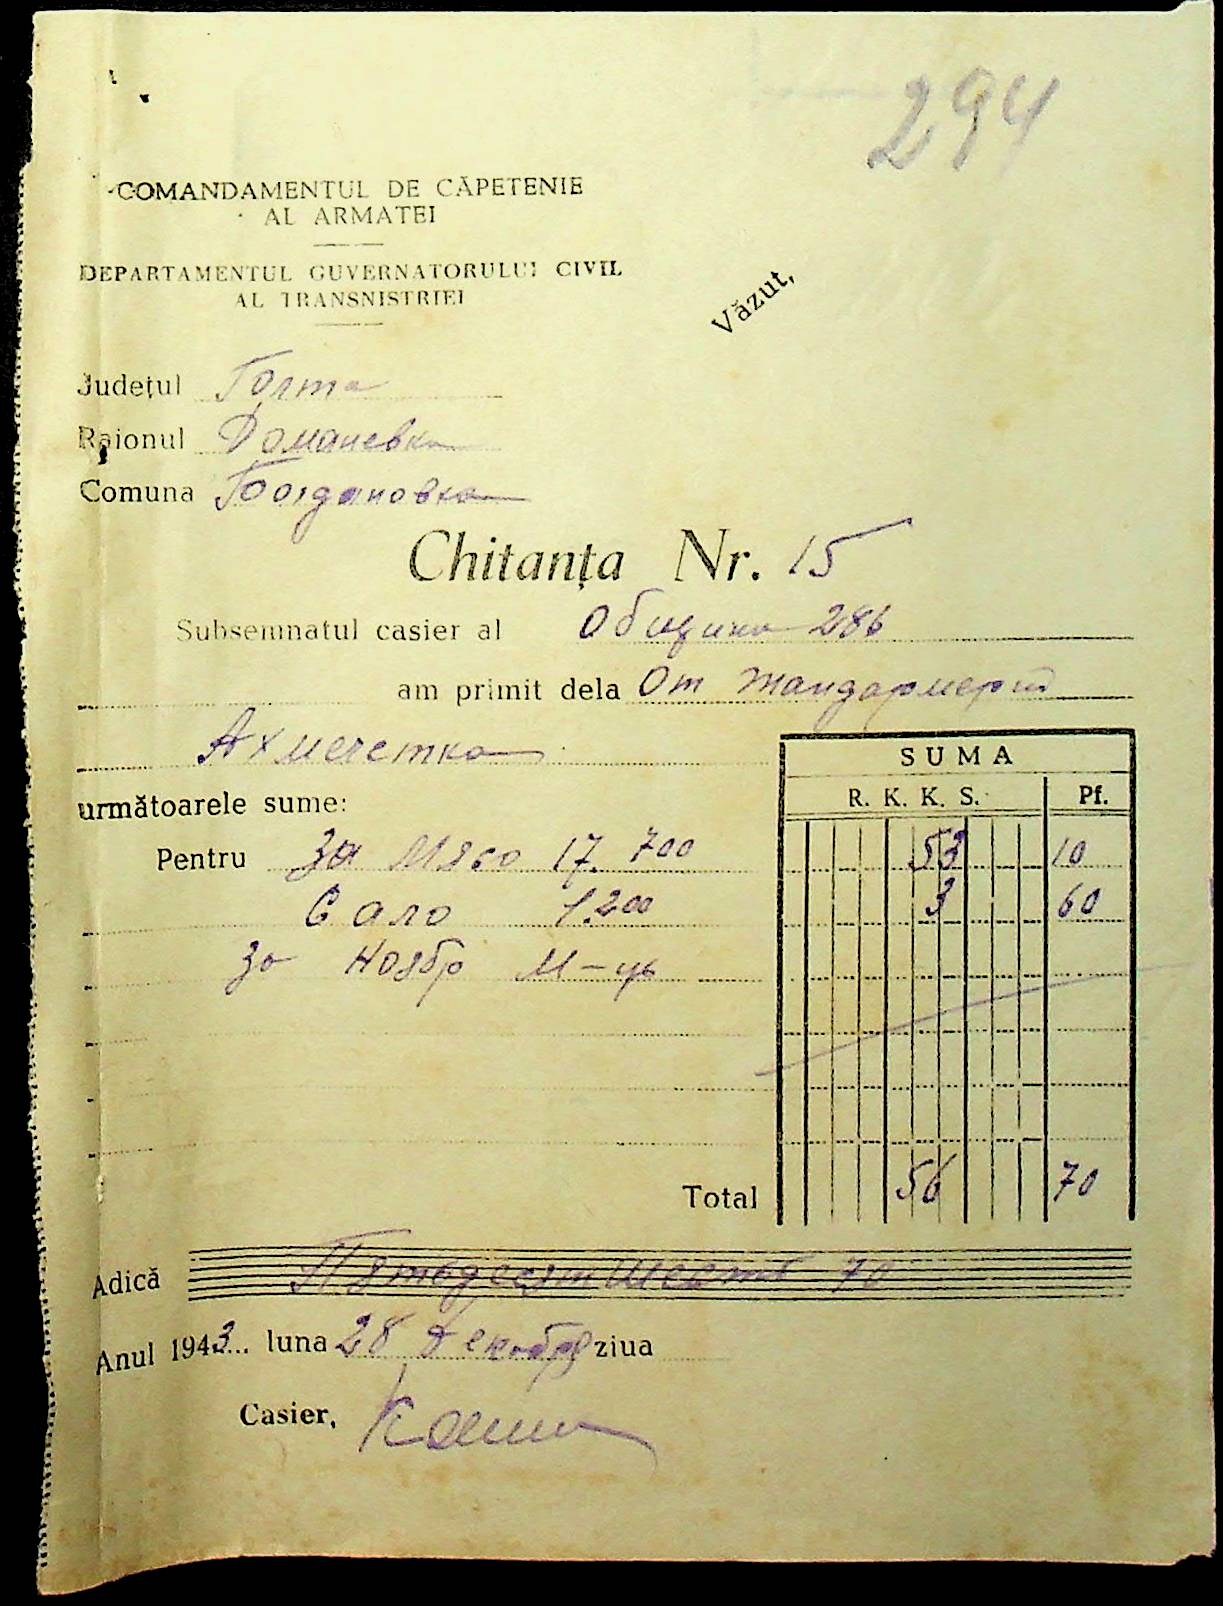 294
COMANDAMENTUL DE CĂPETENIE
AL ARMATEI
DEPARTAMENTUL GUVERNATORULUI CIVIL
AL TRANSNISTRIEI
Văzut,
Județul Голта
Raionul Доманевка
Comuna Богдановка
Chitanța Nr. 15
Subsemnatul casier al Общини 286
am primit dela От Жандармерии
Ахмечетка
SUMA
R. K. K. S. Pf.
următoarele sume:
Pentru За Мясо 17.700 53 10
Сало 1.200 3 60
За Ноябр М-ць
Total 56 70
Adică Пятьдесят Шесть 70
Anul 1943... luna 28 Декабря ziua
Casier,